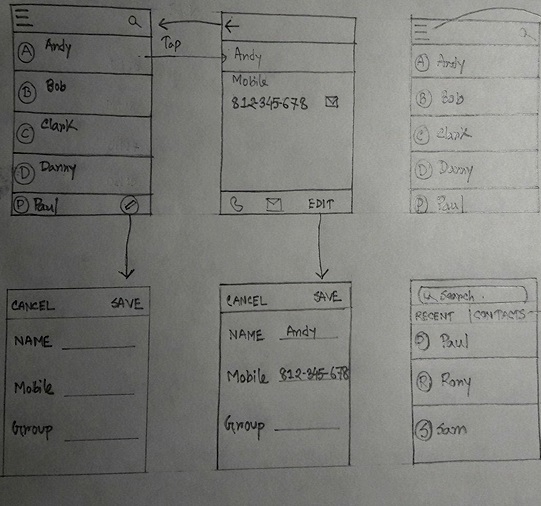 A Andy
B Bob
C Clark
D Danny
P Paul
Tap
Andy
Mobile
812-345-678
EDIT
A Andy
B Bob
C Clark
D Danny
P Paul
CANCEL SAVE
NAME
Mobile
Group
CANCEL SAVE
NAME Andy
Mobile 812-345-678
Group
Search
RECENT | CONTACTS
P Paul
R Rony
S Sam